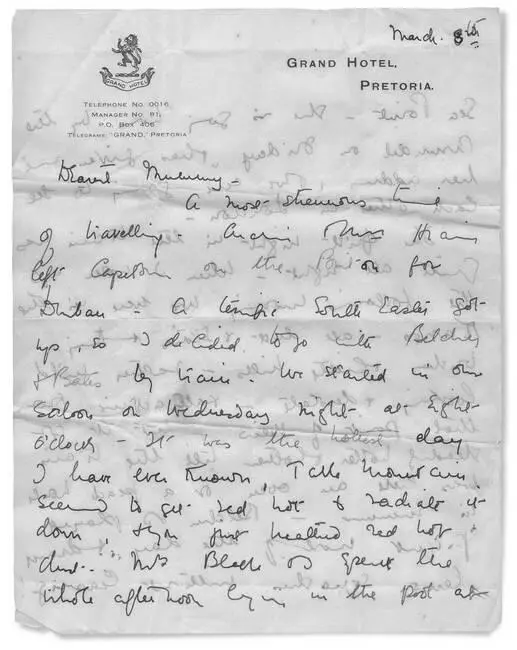 March. 8th
GRAND HOTEL
GRAND HOTEL,
PRETORIA.
TELEPHONE No. 0016
MANAGER No. 91,
P.O. BOX 406
TELEGRAMS "GRAND," PRETORIA
Dearest Mummy -
A most strenuous time
of travelling.
left Capetown on the for
Durban - A terrific South Easter got
up, so I decided to go with Belcher
& Bates by train. We started in our
saloon on Wednesday night at Eight
o'clock - It was the hottest day
I have ever known, Table Mountain
seemed to get red hot & radiate it
down, & you just heated red hot
dust. Mrs Blake & I spent the
whole afternoon lying in the pool at